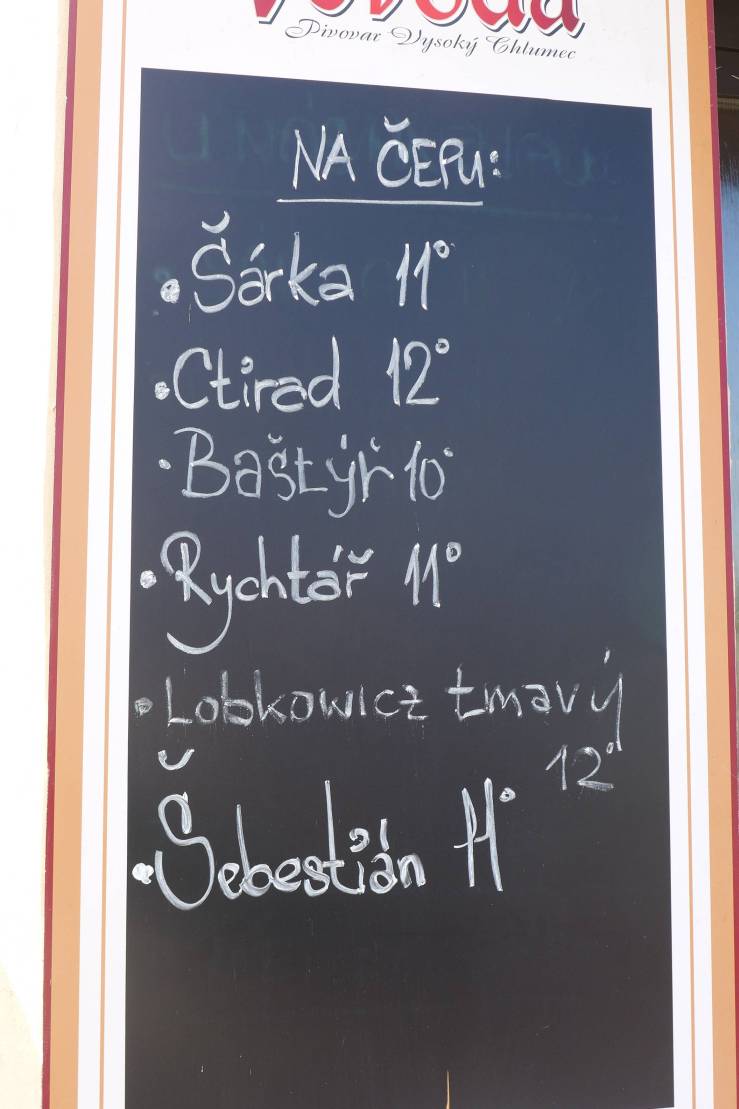 Vévoda
Pivovar Vysoký Chlumec
NA ČEPU:
• Šárka 11°
• Ctirad 12°
• Baštýř 10°
• Rychtář 11°
• Lobkowicz tmavý
12°
• Šebestián 11°